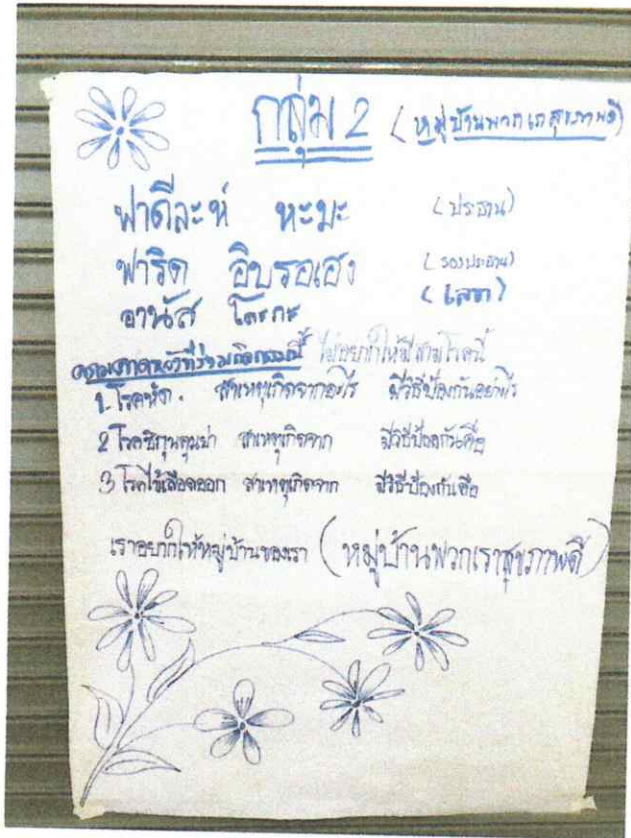 กลุ่ม 2 (หมู่บ้านพวกเราสุขภาพดี)
ฟาดีละห์ หะมะ (ประธาน)
ฟาริด อิบรอเฮง (รองประธาน)
อานัส โตะกะ (เลขา)
ความคาดหวังที่ร่วมกิจกรรมนี้ ไม่อยากให้มีสามโรคนี้
1. โรคหัด. สาเหตุเกิดจากอะไร มีวิธีป้องกันอย่างไร
2 โรคชิกุนคุนย่า สาเหตุเกิดจาก มีวิธีป้องกันคือ
3 โรคไข้เลือดออก สาเหตุเกิดจาก มีวิธีป้องกันคือ
เราอยากให้หมู่บ้านของเรา (หมู่บ้านพวกเราสุขภาพดี)